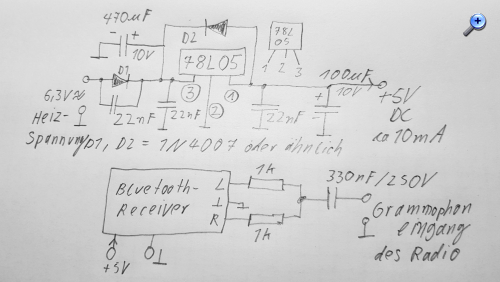 470µF
- +
10V
D2
78L05
78L
05
1 2 3
D1
6,3V~
Heiz-
Spannung
22nF
22nF
③
②
①
22nF
100µF
+
10V
+5V
DC
ca 10mA
D1, D2 = 1N4007 oder ähnlich
Bluetooth-
Receiver
L
⊥
R
1k
1k
330nF/250V
Grammophon
eingang
des Radio
+5V